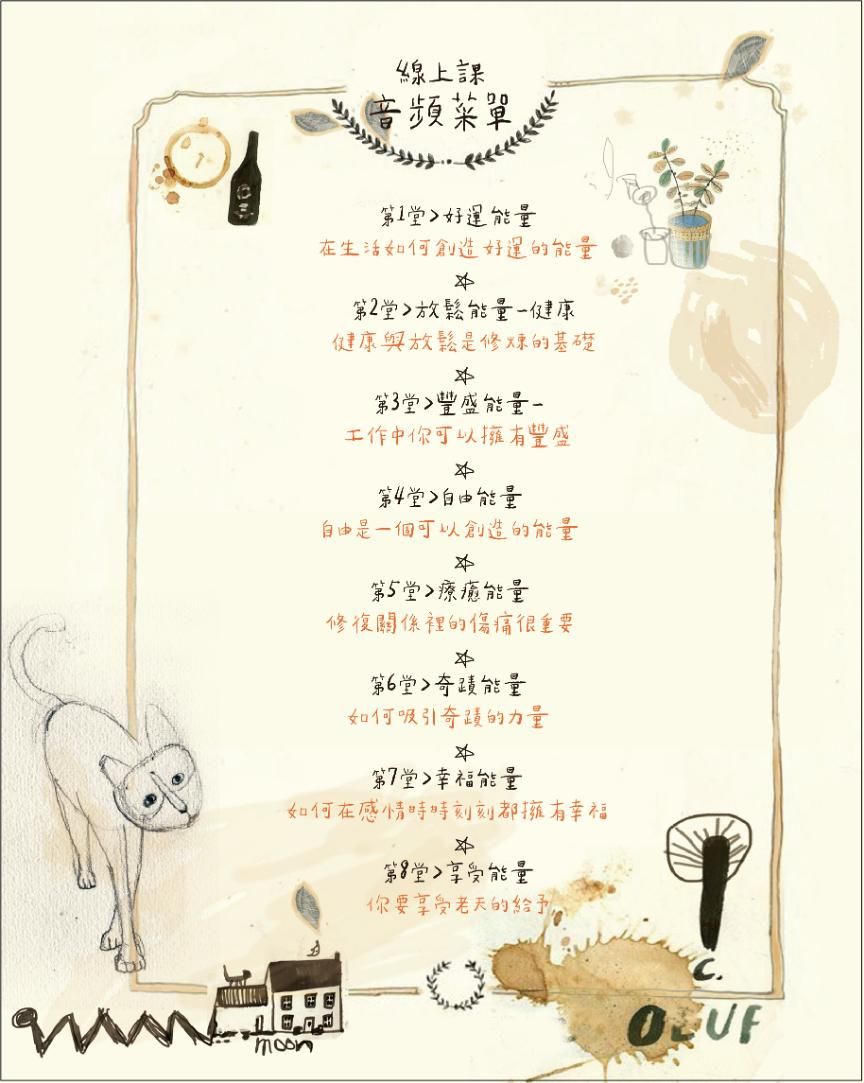 線上課
音頻菜單
第1堂>好運能量
在生活如何創造好運的能量
第2堂>放鬆能量-健康
健康與放鬆是修煉的基礎
第3堂>豐盛能量-
工作中你可以擁有豐盛
第4堂>自由能量
自由是一個可以創造的能量
第5堂>療癒能量
修復關係裡的傷痛很重要
第6堂>奇蹟能量
如何吸引奇蹟的力量
第7堂>幸福能量
如何在感情時時刻刻都擁有幸福
第8堂>享受能量
你要享受老天的給予
C.
OEUF
moon